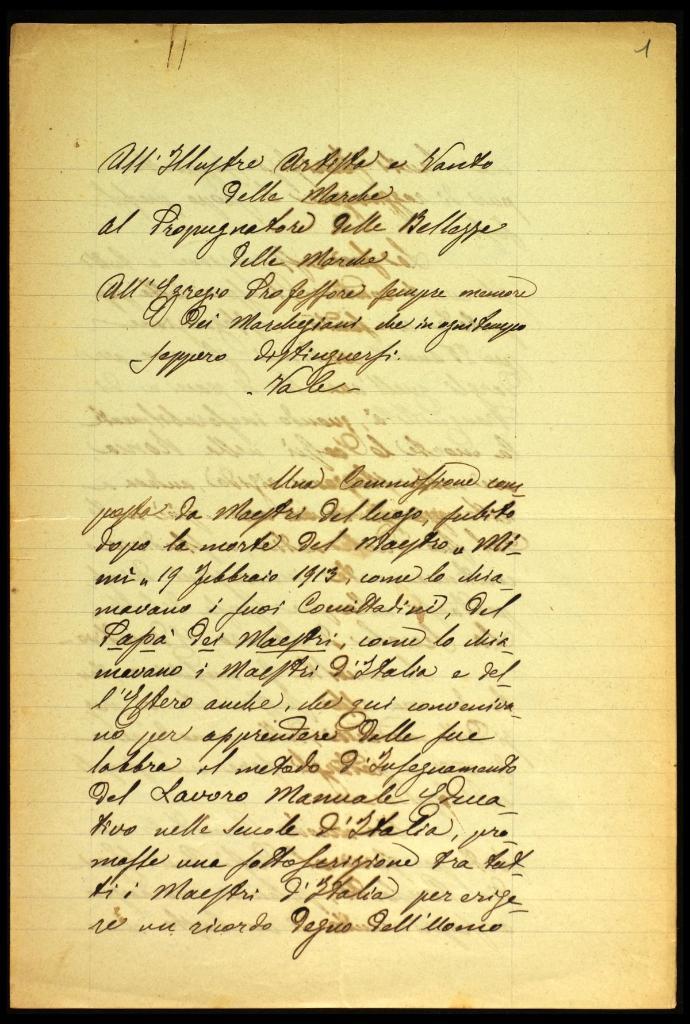 1
All'Illustre Artista e Vanto
delle Marche
al Propugnatore delle Bellezze
delle Marche
All'Egregio Professore sempre memore
Dei Marchegiani che in ogni tempo
seppero distinguersi.
Vale
Una Commissione com-
posta da Maestri del luogo, subito
dopo la morte del Maestro "Mi-
mi" 19 Febbraio 1913, come lo chia-
mavano i suoi Concittadini, del
Papà dei Maestri, come lo chia-
mavano i Maestri d'Italia e del-
l'Estero anche, che qui conveniva-
no per apprendere dalle sue
labbra il metodo d'Insegnamento
del Lavoro Manuale Educa-
tivo nelle scuole d'Italia, pro-
masse una sottoscrizione tra tut-
ti i Maestri d'Italia per erige-
re un ricordo degno dell'Uomo